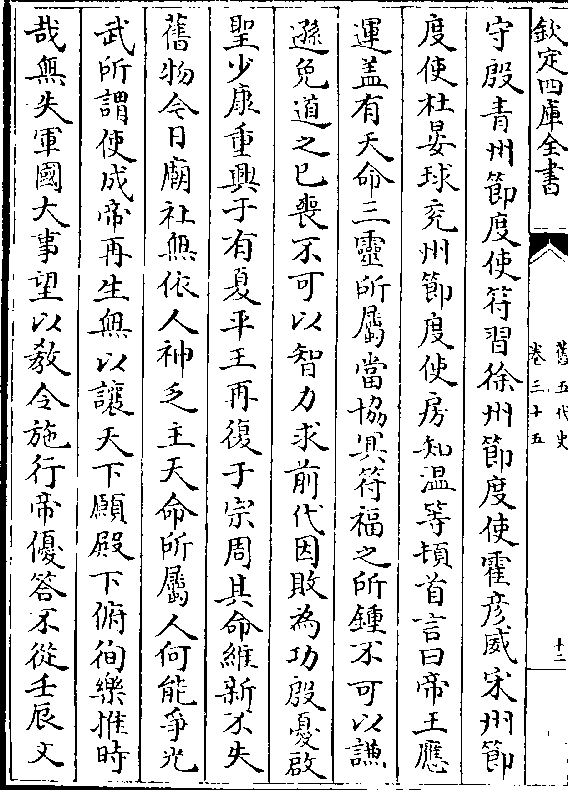 欽定四庫全書
舊五代史
卷三十五
十二
守殷青州節度使符習徐州節度使霍彦威宋州節
度使杜晏球兖州節度使房知温等頓首言曰帝王應
運盖有天命三靈所屬當協冥符福之所鍾不可以謙
遜免道之已喪不可以智力求前代因敗為功殷憂啟
聖少康重興于有夏平王再復于宗周其命維新不失
舊物今日廟社無依人神乏主天命所屬人何能爭光
武所謂使成帝再生無以讓天下願殿下俯徇樂推時
哉無失軍國大事望以教令施行帝優答不從壬辰文